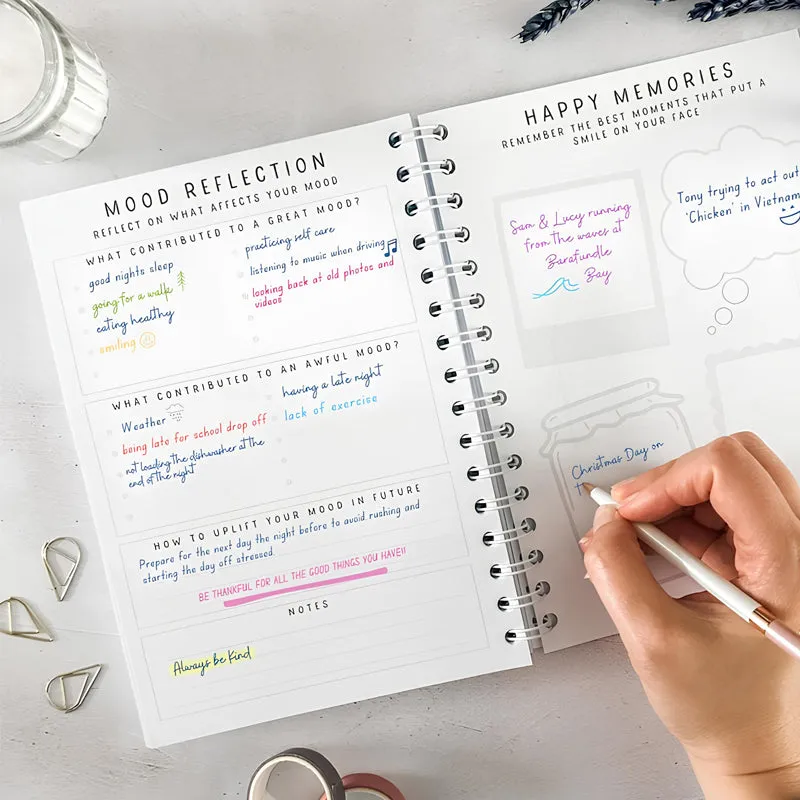 MOOD REFLECTION
REFLECT ON WHAT AFFECTS YOUR MOOD
WHAT CONTRIBUTED TO A GREAT MOOD?
good nights sleep
going for a walk
eating healthy
smiling
practicing self care
listening to music when driving
looking back at old photos and
videos
WHAT CONTRIBUTED TO AN AWFUL MOOD?
Weather
being late for school drop off
not loading the dishwasher at the
end of the night
having a late night
lack of exercise
HOW TO UPLIFT YOUR MOOD IN FUTURE
Prepare for the next day the night before to avoid rushing and
starting the day off stressed
BE THANKFUL FOR ALL THE GOOD THINGS YOU HAVE!!
NOTES
Always be Kind
HAPPY MEMORIES
REMEMBER THE BEST MOMENTS THAT PUT A
SMILE ON YOUR FACE
Sam & Lucy running
from the waves at
Barafundle
Bay
Tony trying to act out
'Chicken' in Vietnam
Christmas Day on